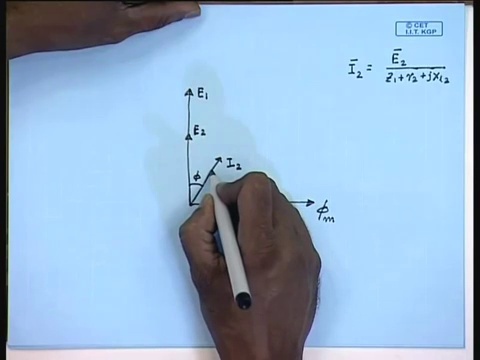 © CET
I.I.T. KGP
Ī₂ = Ē₂ / (z₁ + r₂ + jx_{l2})
E₁
E₂
I₂
ϕ
ϕₘ